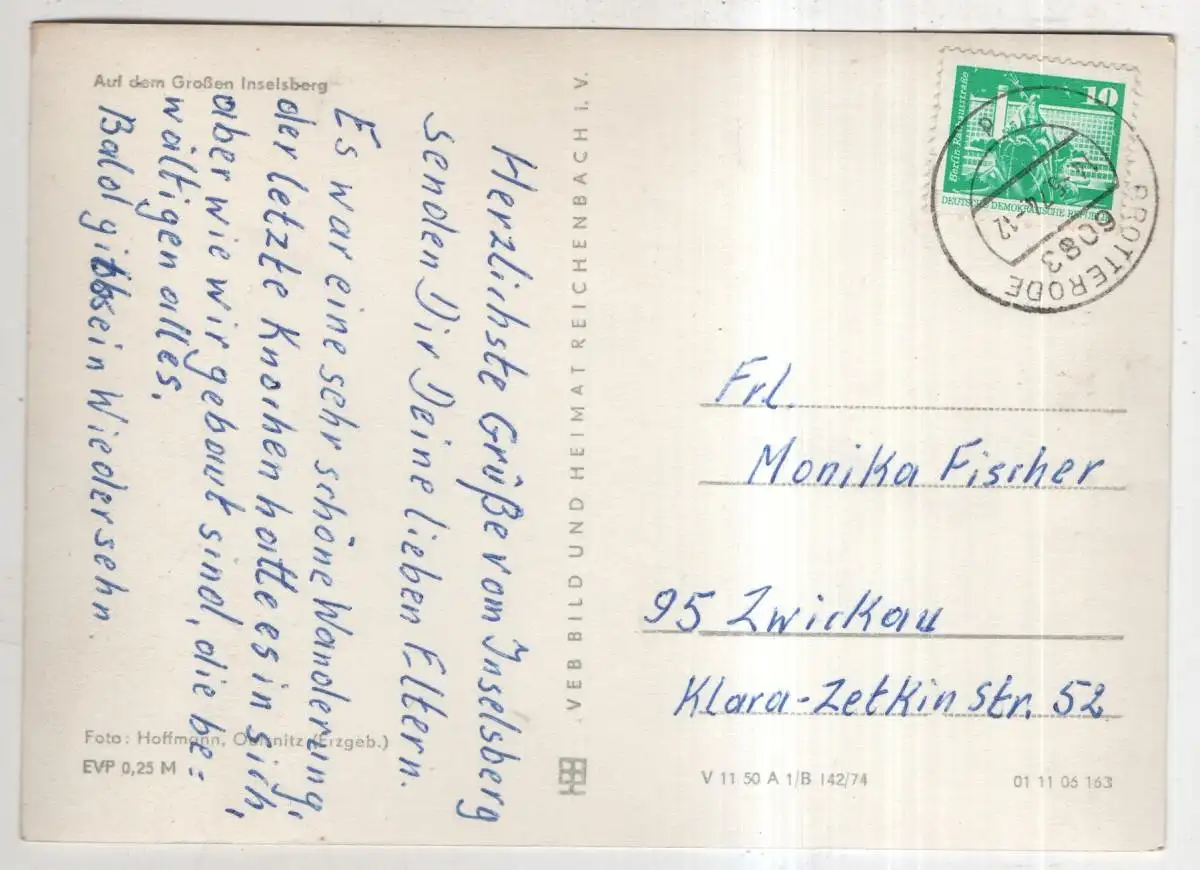 Auf dem Großen Inselsberg
Herzlichste Grüße vom Inselsberg
senden Dir Deine lieben Eltern.
Es war eine sehr schöne Wanderung,
der letzte Knochen hatte es in sich,
aber wie wir gebaut sind, die be=
wältigen alles.
Bald gibts ein Wiedersehn.
Foto: Hoffmann, Oelsnitz (Erzgeb.)
EVP 0,25 M
VEB BILD UND HEIMAT REICHENBACH I. V.
10
Berlin-Rathausstraße
DEUTSCHE DEMOKRATISCHE REPUBLIK
6083
BROTTERODE
Frl.
Monika Fischer
95 Zwickau
Klara-Zetkin Str. 52
V 11 50 A 1/B 142/74
01 11 06 163